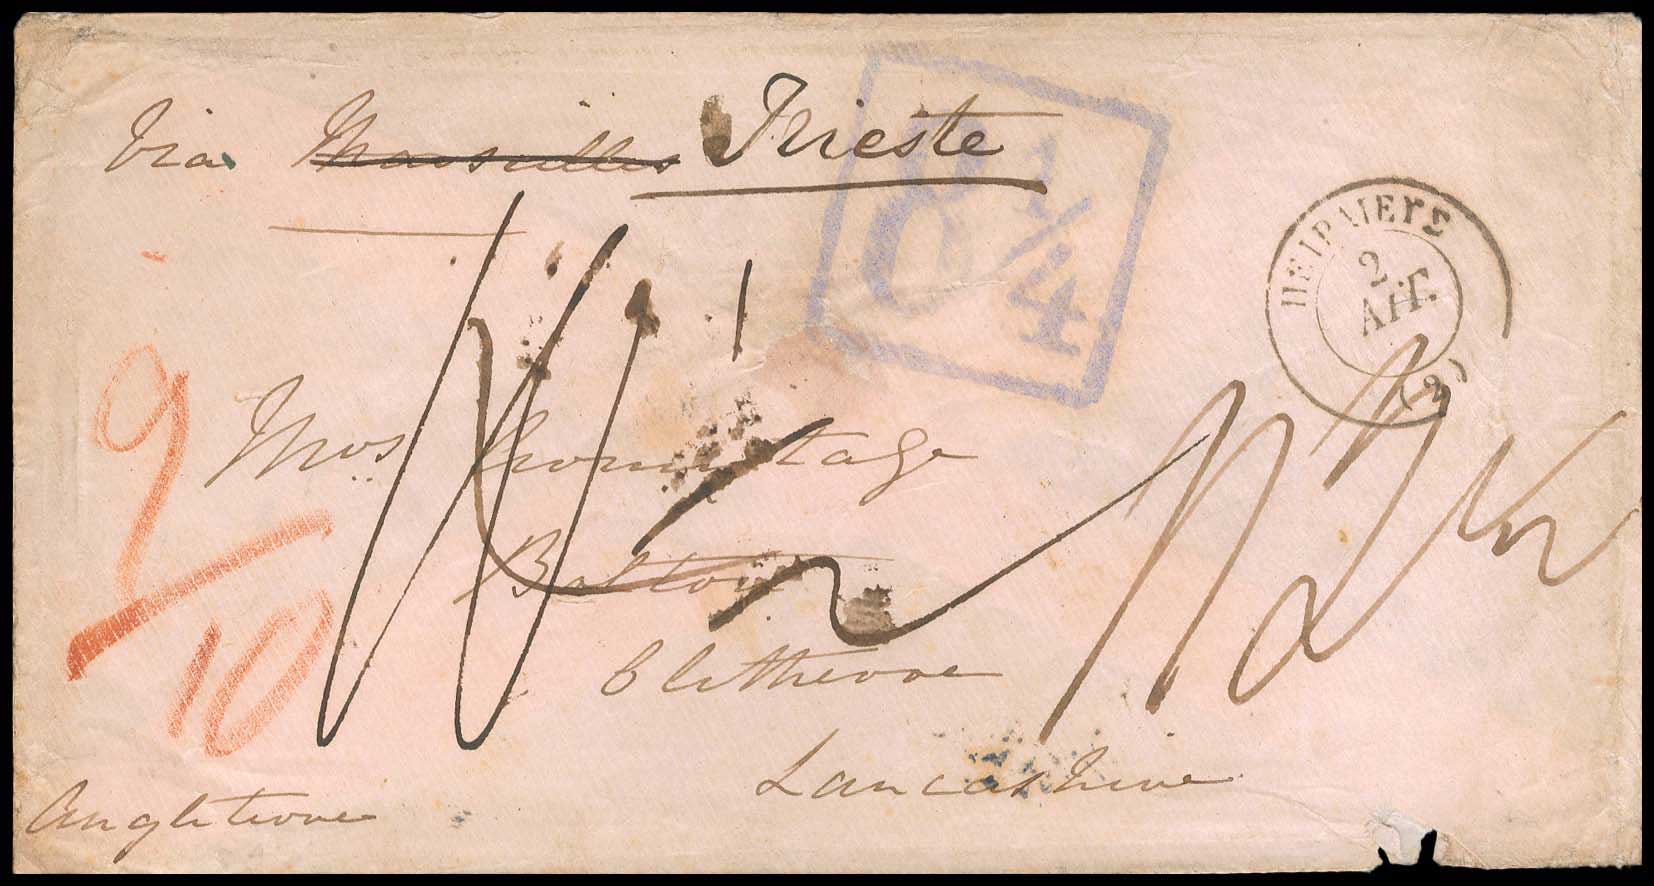 Via Marseilles Trieste
8 1/4
ΠΕΙΡΑΙΕΥΣ
2
ΑΠΡ.
(2)
9/10
Mrs
Bolton
Clitheroe
Lancashire
Angleterre